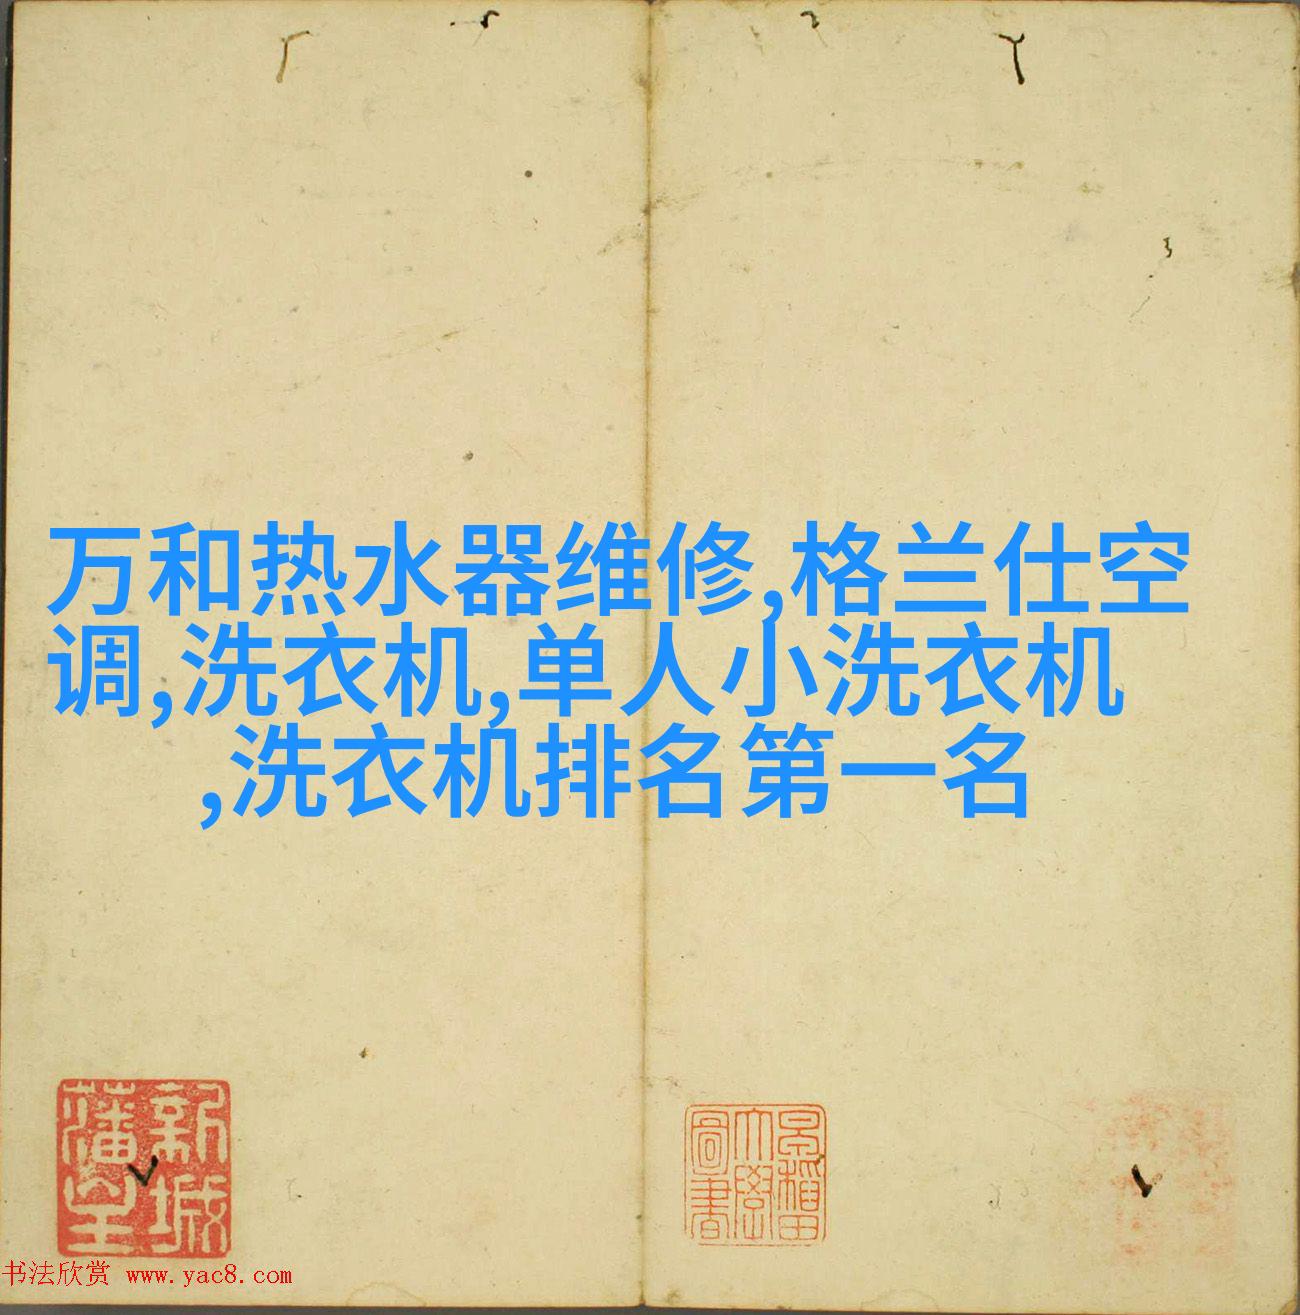 万和热水器维修,格兰仕空
调,洗衣机,单人小洗衣机
,洗衣机排名第一名
新城
藩
早稲田
大學
圖書
书法欣赏 www.yac8.com